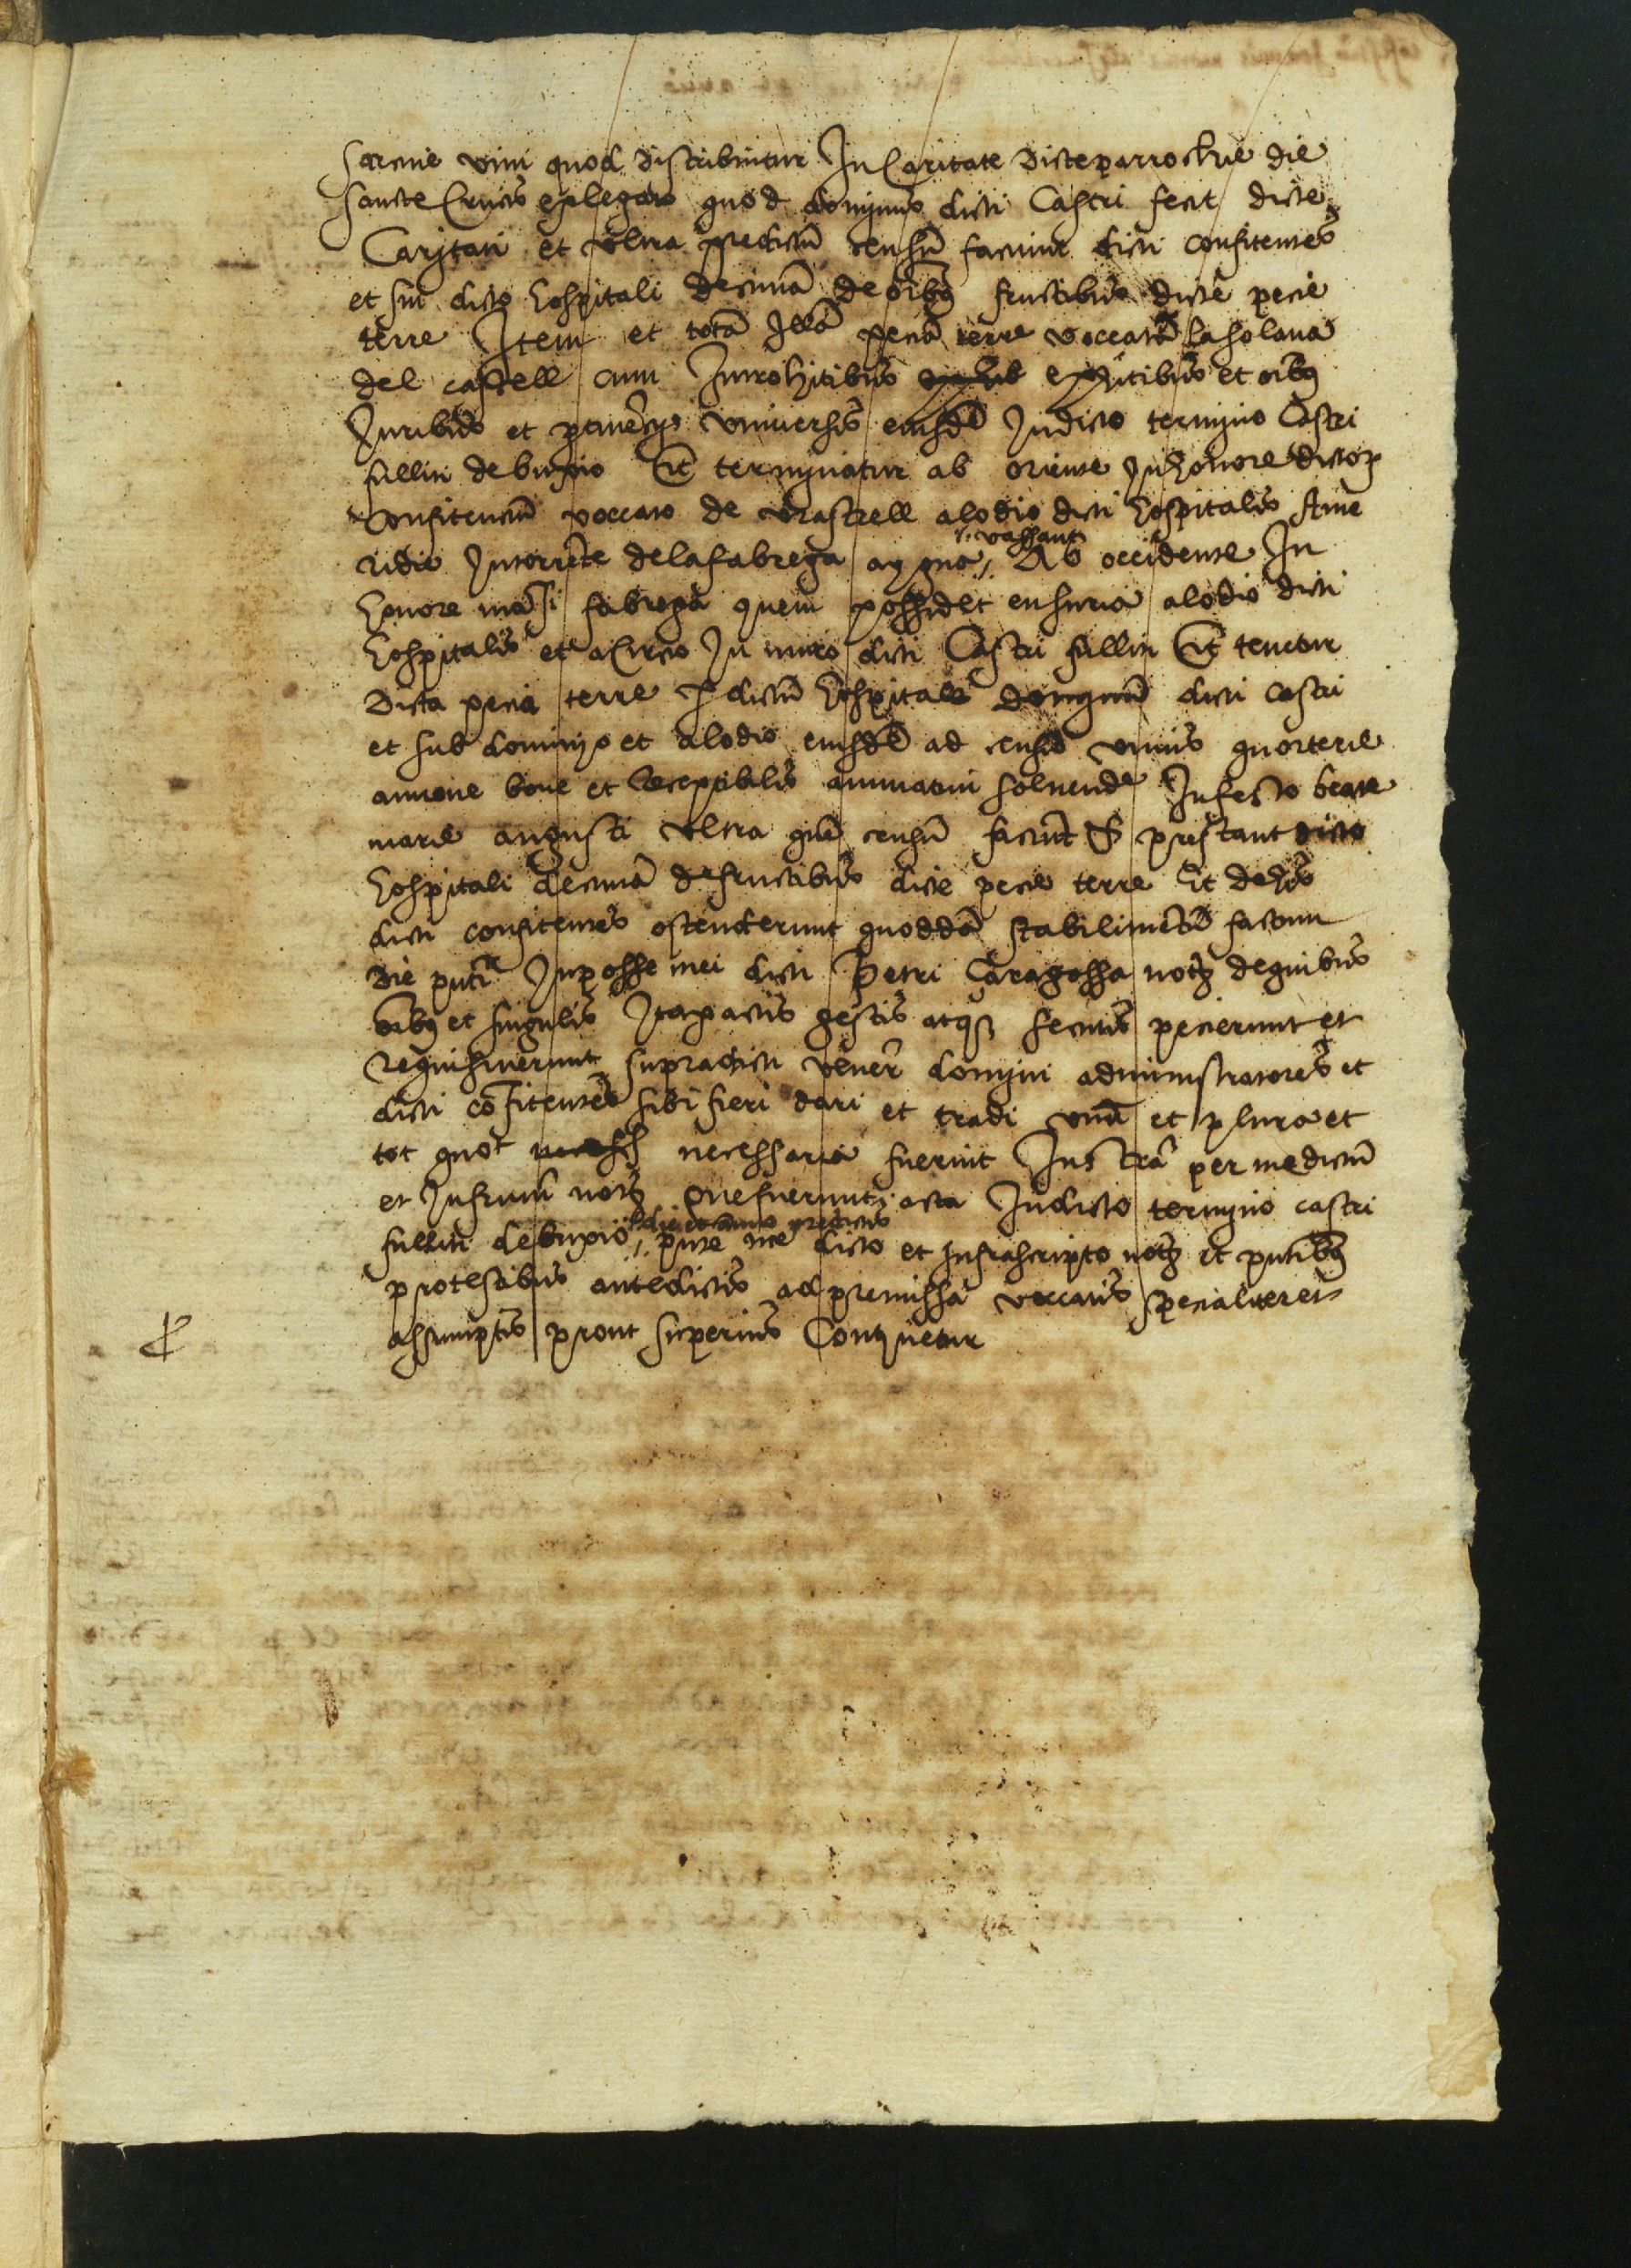 sarcine vini quod distribuitur In Caritate dicte parrochie die
sancte Crucis ex legato quod dominus dicti Castri fecit dicte
Caritati et ultra predictū censū faciunt dicti confitentes
et sui dicto hospitali decimā de oībȝ fructibus dicte pecie
terre Item et totā Illā peciā terre voccatā la solana
del castell cum Introhitibus exitibus et oībȝ
Iuribus et pertinēcijs universis eiusdē In dicto termino Castri
fulliti de bunyio Et terminatur ab oriente In honore dictoꝝ
confitenciū voccato de vrastrell alodio dicti hospitalis A me
ridie In torrēte de la fabrega aygua vassant Ab occidente In
honore māsi fabrega quem possidet en suria alodio dicti
hospitalis et a Circio In muro dicti Castri fulliti Et tenetur
Dicta pecia terre ꝑ dictū hospitale dominū dicti castri
et sub dominio et alodio eiusdē ad censū unius quarterie
annone bone et Receptibilis annuatim solvende In festo beate
marie augusti ultra quē censū faciūt & prestant dicto
hospitali decimā de fructibus dicte pecie terre Et de his
dicti confitentes ostenderunt quoddā stabilimētū factum
Die pn̄ti In posse mei dicti Petri Çaragossa notȝ de quibus
oībȝ et singulis Ita ꝑactis gestis atqȝ secutis petierunt et
Requisiverunt supradicti vener̄ domini administratores et
dicti cōfitentes sibi fieri dari et tradi unū et plura et
tot quot necessaria fuerint Instrā per me dictū
et Infrmū notȝ que fuerunt acta In dicto termino castri
fulliti de bunyio die et anno predictis pn̄te me dicto et Infrascripto notȝ et pn̄tibȝ
pro testibus antedictis ad premissa voccatis specialiter et
assumptis prout superius Continetur